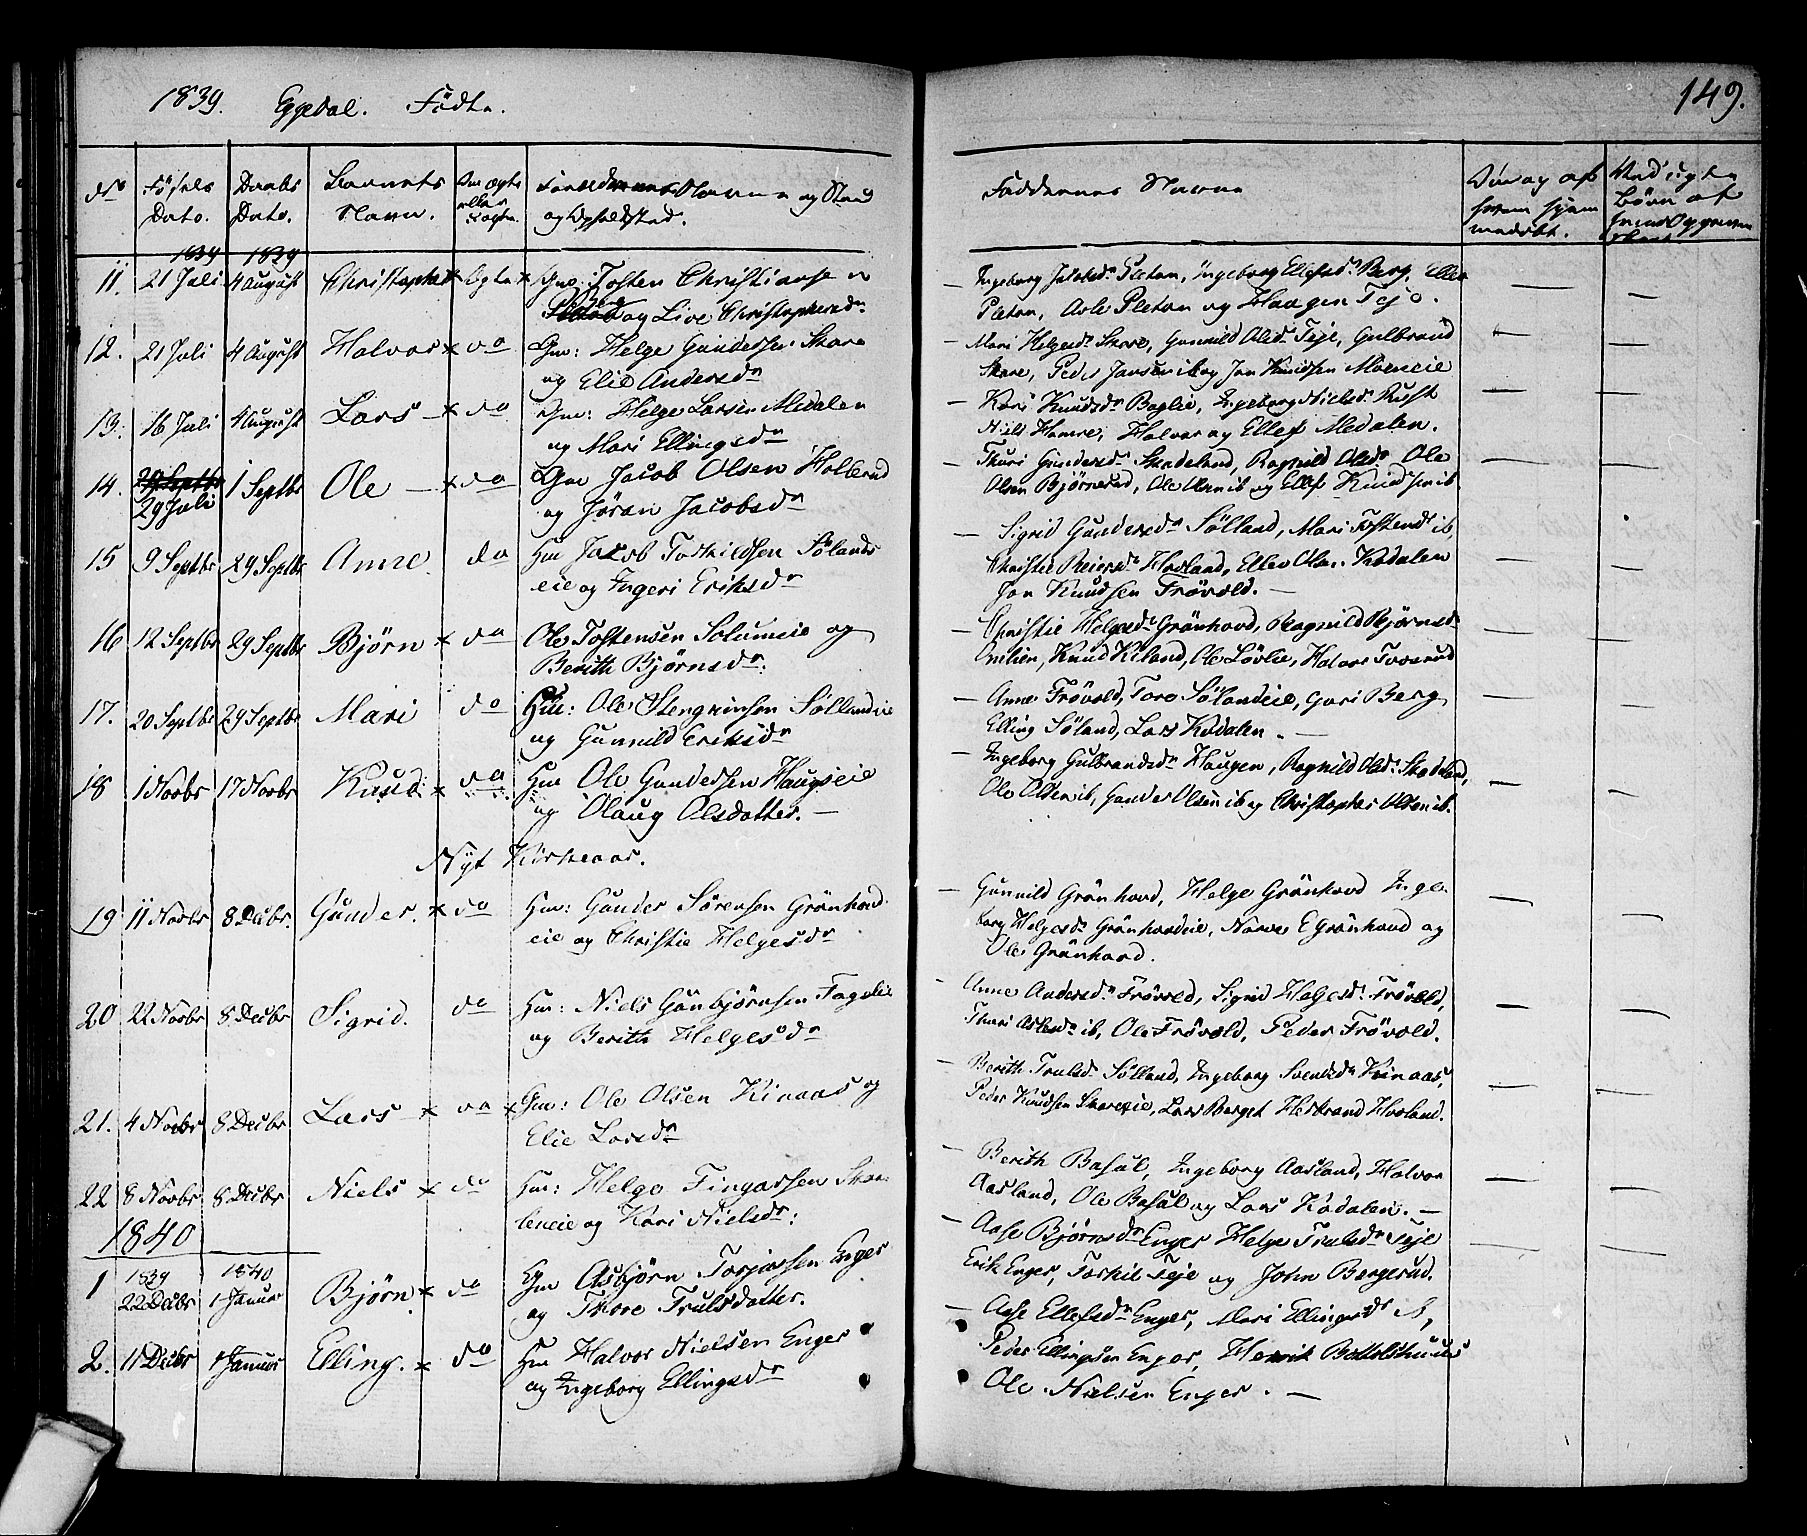 1839. Eggedal. Fødte.
149.
No Fødsels Dato. Daabs Dato. Barnets Navn. Om Ægte eller Uægte. Forældrenes Navne og Stand og Opholdssted.
Faddernes Navne
1839 1839
11. 21 Juli 4 August Christopher × Ægte × Gm: Tosten Christianse n
og Live Christophersdr.
— Ingeborg Jacobsdr Pletan, Ingeborg Ellefsdr Berg, Ellev
Pletan, Asle Pletan og Haagen Teje.
12. 21 Juli 4 August Halvor × do Gm: Helge Gundersen Skare
og Elie Andersdr
— Mari Helgesdr Skare, Gunnild Olsdr Teje, Gulbrand
Skare, Peder Jansen ib og Jon Knudsen Moeneie
13. 16 Juli 4 August Lars — × do Gm: Helge Larsen Medalen
og Mari Ellingsdr
— Kari Knudsdr Baglie, Ingeborg Nielsdr Rust
Niels Hamre, Halvor og Ellef Medalen.
14. 29 Juli 1 Septbr Ole — × do Gm Jacob Olsen Hollerud
og Jøran Jacobsdr
— Thuri Gundersdr Skadeland, Ragnild Olsdr Ole
Olsen Bjørnerud, Ole Olsen ib og Ellef Knudsen ib
15 9 Septbr 29 Septbr Anne. do Gm Jacob Torkildsen Sølands
eie og Ingeri Eriksdr
— Sigrid Gundersdr Sølland, Mari Tostensdr ib,
Christie Reiersdr Hovland, Ellev Olsen Kodalen
Jon Knudsen Frøvold. —
16 12 Septbr 29 Septbr Bjørn × do Ole Tostensen Solumeie og
Berith Bjørnsdr.
— Christie Helgesdr Grønhovd, Ragnild Bjørnsdr
Knud Kiland, Ole Løvlie, Halvor Tvarrud
17. 20 Septbr 29 Septbr Mari do Gm: Ole Stengrimsen Søllandeie
og Gunnild Eriksdr
— Anne Frøvold, Tore Sølandeie, Guri Berg
Elling Søland, Lars Kodalen. —
18 1 Novbr 17 Novbr Knud × do Gm Ole Gundersen Haugseie
og Olaug Olsdatter. —
— Ingeborg Gulbrandsdr Haugen, Ragnild Olsdr Skadeland,
Ole Olsen ib, Gunder Olsen ib og Christopher Olsen ib.
Nyt Kirkeaar.
19 11 Novbr 8 Decbr. Gunder. × do Gm: Gunder Sørensen Grønhovd
eie og Christie Helgesdr
— Gunnild Grønhovd, Helge Grønhovd Inge
borg Helgesdr Grønhovdeie, Narve E Grønhovd og
Ole Grønhovd.
20 22 Novbr 8 Decbr Sigrid. do Gm: Niels Gunbjørnsen Fagerlie
og Berith Helgesdr
— Anne Andersdr Frøvold, Sigrid Helgesdr Frøvold,
Thuri Aslesdr ib, Ole Frøvold, Peder Frøvold.
21. 4 Novbr 8 Decbr Lars × do × Gm: Ole Olsen Kinaas og
Elie Larsdr
— Berith Trulsdr Sølland, Ingeborg Svendsdr Kinaas,
Peder Knudsen Skareeie, Lars Berget Herbrand Hovland.
22 8 Novbr 8 Decbr Niels × do Gm: Helge Fingarsen Skare
og Kari Nielsdr:
— Berith Basul, Ingeborg Aasland, Halvor
Aasland, Ole Basul og Lars Kodalen. —
1840
1839 1840
1 22 Decbr 1 Januar Bjørn × do Gm Asbjørn Torjersen Enger
og Thore Trulsdatter.
— Aase Bjørnsdr Enger Helge Trulsdr Teje
Erik Enger, Torkil Teje og John Bergerud.
2. 11 Decbr 1 Januar Elling. × do Gm Halvor Nielsen Enger
og Ingeborg Ellingsdr
— Aase Ellefsdr Enger, Mari Ellingsdr ib,
Peder Ellingsen Enger, Henrik
Ole Nielsen Enger. —